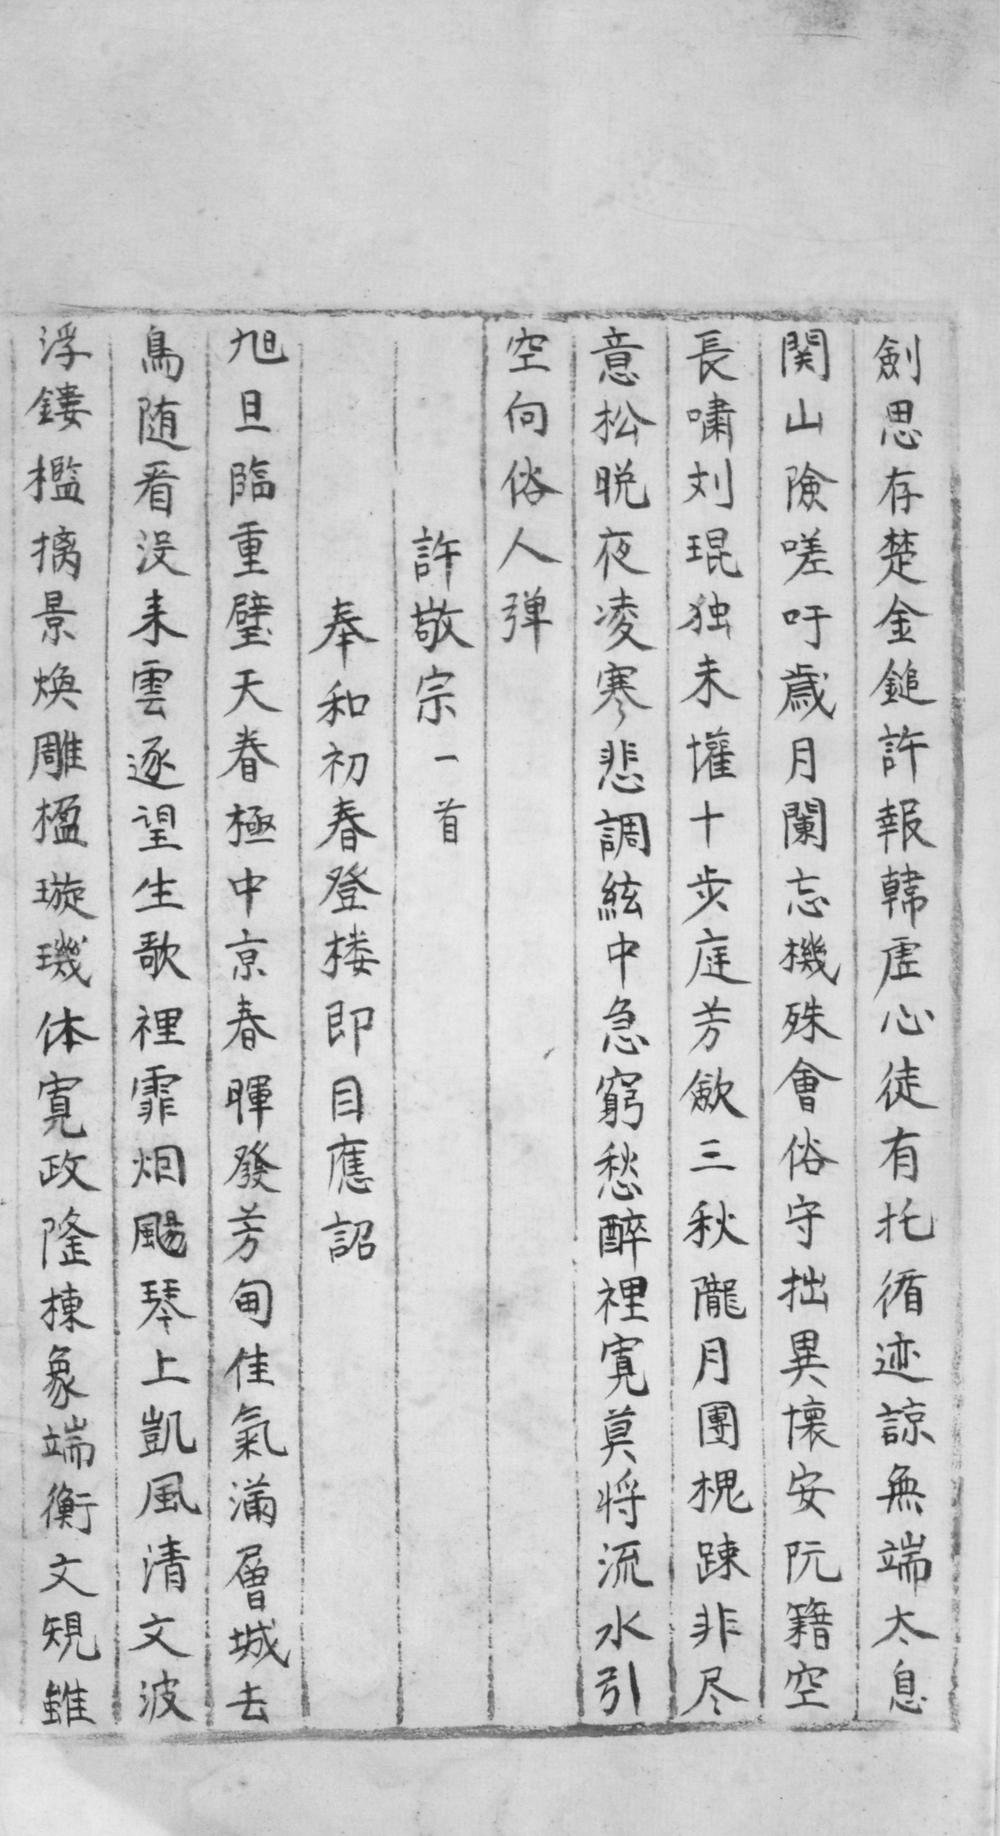 劍思存楚金鎚許報韓虛心徒有托循迹諒無端太息
関山險嗟吁歳月闌忘機殊會俗守拙異懷安阮籍空
長嘯刘琨独未懽十步庭芳歛三秋隴月團槐踈非尽
意松晩夜凌寒悲調絃中急窮愁醉裡寛莫将流水引
空向俗人弾
許敬宗一首
奉和初春登楼即目應詔
旭旦臨重璧天眷極中京春暉發芳甸佳氣滿層城去
鳥随看没来雲逐望生歌裡霏烟颺琴上凱風清文波
浮鏤檻摛景煥雕楹璇璣体寛政隆棟象端衡文規雖